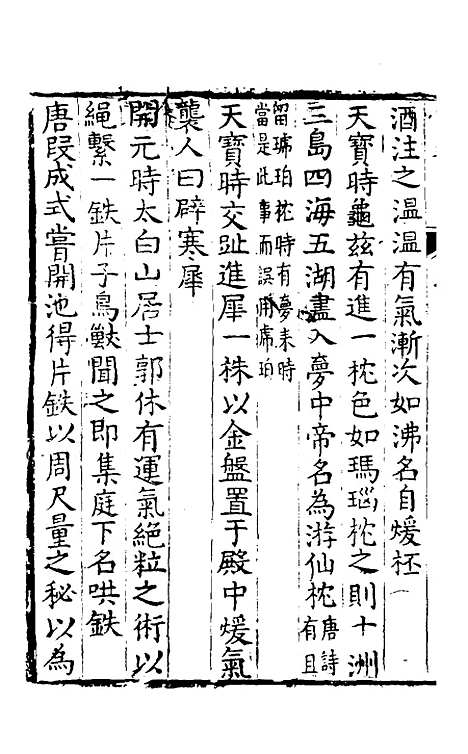 酒注之温温有氣漸次如沸名自煖杯
天寶時龜兹有進一枕色如瑪瑙枕之則十洲
三島四海五湖盡入夢中帝名為游仙枕唐詩有且
留琥珀枕時有夢来時
當是此事而誤用琥珀
天寶時交趾進犀一株以金盤置于殿中煖氣
襲人曰辟寒犀
開元時太白山居士郭休有運氣絕粒之術以
繩繫一鉄片子鳥獸聞之即集庭下名哄鉄
唐段成式嘗開池得片鉄以周尺量之秘以為